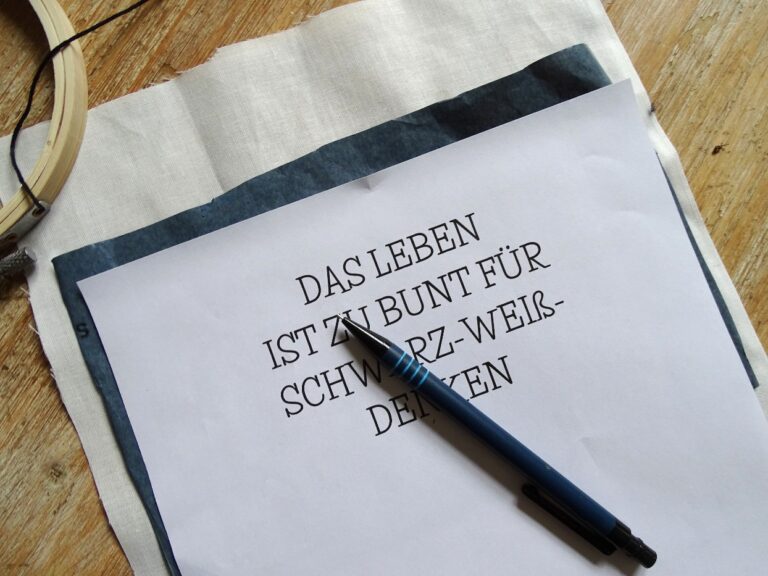 DAS LEBEN
IST ZU BUNT FÜR
SCHWARZ-WEIß-
DENKEN